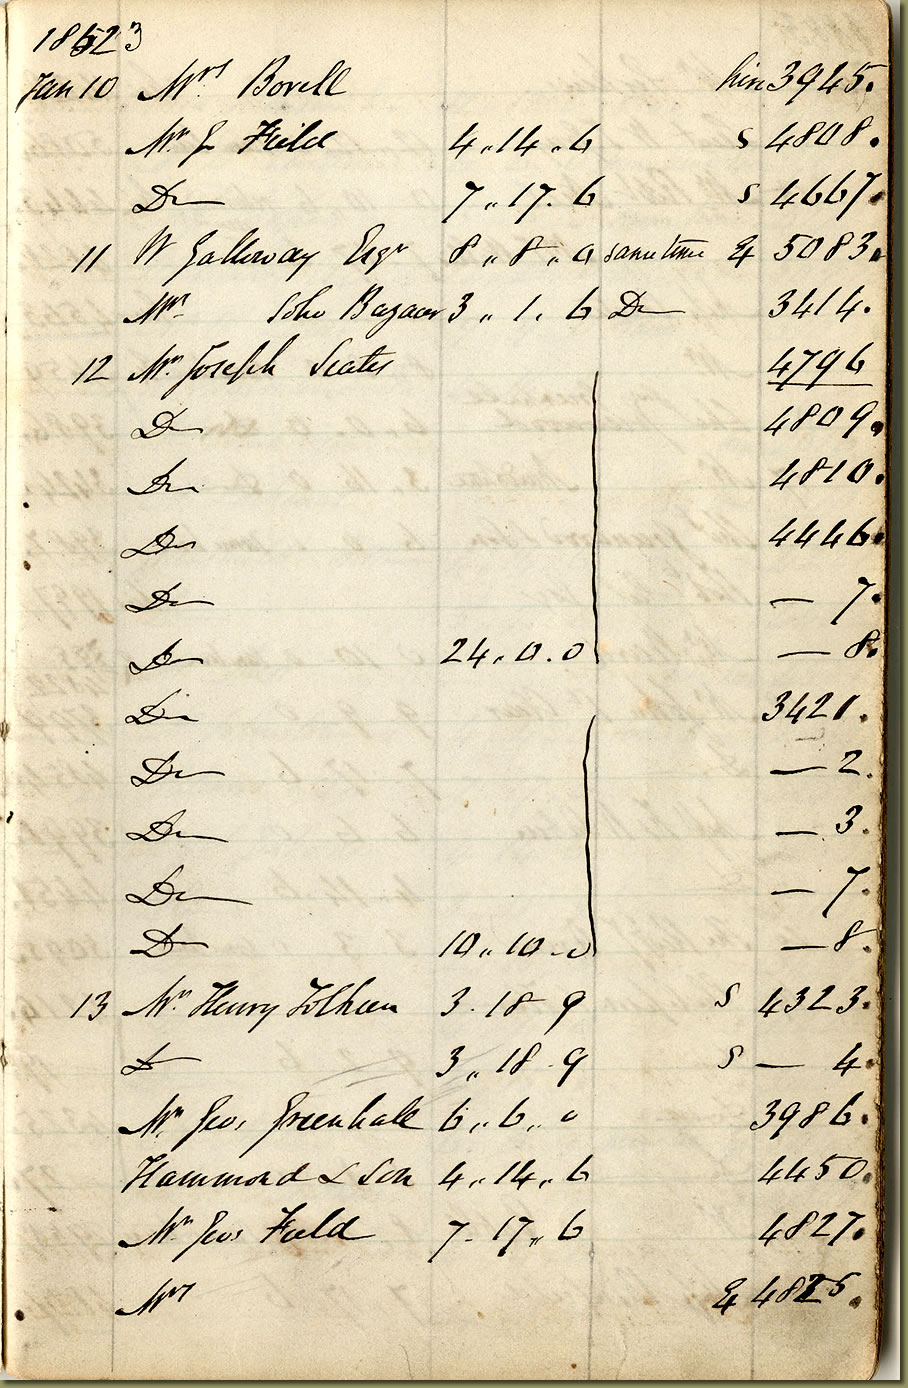 1852 3
Jan 10 Mrs Bovell hire 3945.
Mr J Field 4 „ 14 „ 6 S 4808.
Do 7 „ 17. 6 S 4667.
11 W Galloway Esqr 8 „ 8 „ 0 same time & 5083.
Mrs Soho Bazaar 3 „ 1. 6 Do 3414.
12 Mr Joseph Scates 4796
Do 4809.
Do 4810.
Do 4446.
Do — 7.
Do 24 „ 0. 0 — 8.
Do 3421.
Do — 2.
Do — 3.
Do — 7.
Do 10 „ 10 - 0 — 8.
13 Mr Henry Tolhien 3. 18 9 S 4323.
Do 3 „ 18 - 9 S — 4.
Mr Geo. Greenhale 6 „ 6 „ 0 3986.
Hammond & Son 4 „ 14 „ 6 4450.
Mr Geo. Field 7 - 17 „ 6 4827.
Mrs & 4825.